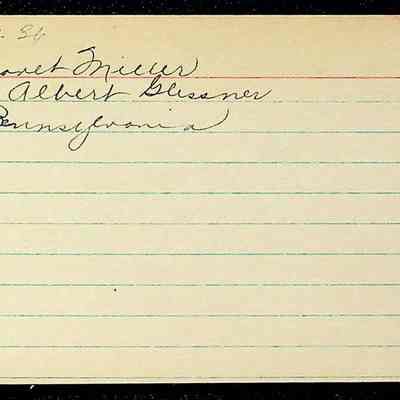 36
aret Miller
Albert Glessner
Pennsylvania